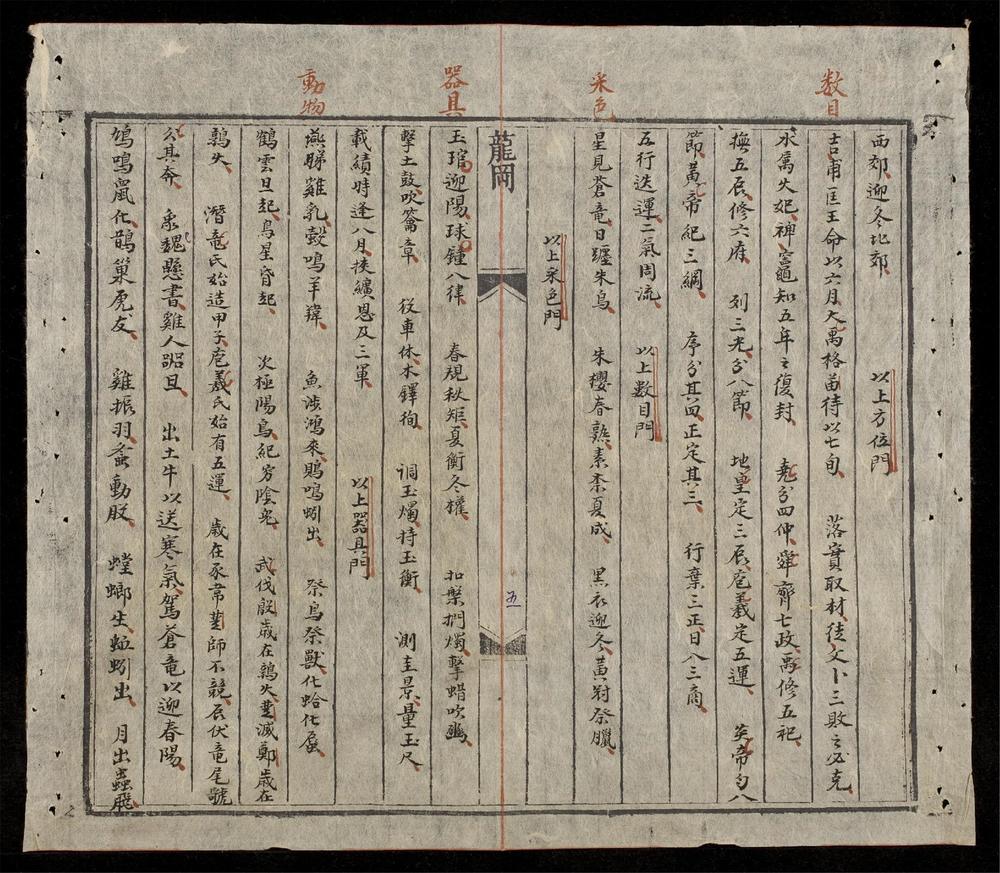 数目
采色
器具
動物
西郊迎冬北郊　以上方位門
吉甫匡王命以六月大禹格苗待以七旬　落實取材徒父卜三敗之必克
水属火妃神竈知五年之復封　堯分四仲舜齊七政禹修五祀
撫五辰修六府　列三光分八節　地皇定三辰庖羲定五運　炎帝分八
節黄帝紀三綱　序分其四正定其三　行葉三正日入三商
五行迭運二氣周流　以上數目門
星見蒼竜日躔朱鳥　朱櫻春熟素柰夏成　黒衣迎冬黄対祭臘
以上采色門
龍岡
五
玉琯迎陽球鍾八律　春規秋矩夏衡冬權　扣槃捫燭擊蜡吹豳
擊土鼓吹籥章　役車休木鐸徇　調玉燭持玉衡　測圭景量玉尺
載績時逢八月挟纊恩及三軍　以上器具門
燕睇雞乳瞉鳴羊羍　魚涉鴻來鵙鳴蚓出　祭鳥祭獸化蛤化蜃
鶴雲旦起鳥星昏起　次極陽鳥紀穷陰兎　武伐殷歳在鶉火楚滅鄭歳在
鶉火　潛竜氏始造甲子庖羲氏始有五運　歳在豕韋楚師不競辰伏竜尾虢
公其奔　象魏懸書雞人㗊旦　出土牛以送寒氣駕蒼竜以迎春陽
鳩鳴鼠化鵲巢虎交　雞振羽螽動股　螳螂生蚯蚓出　月出蟲飛